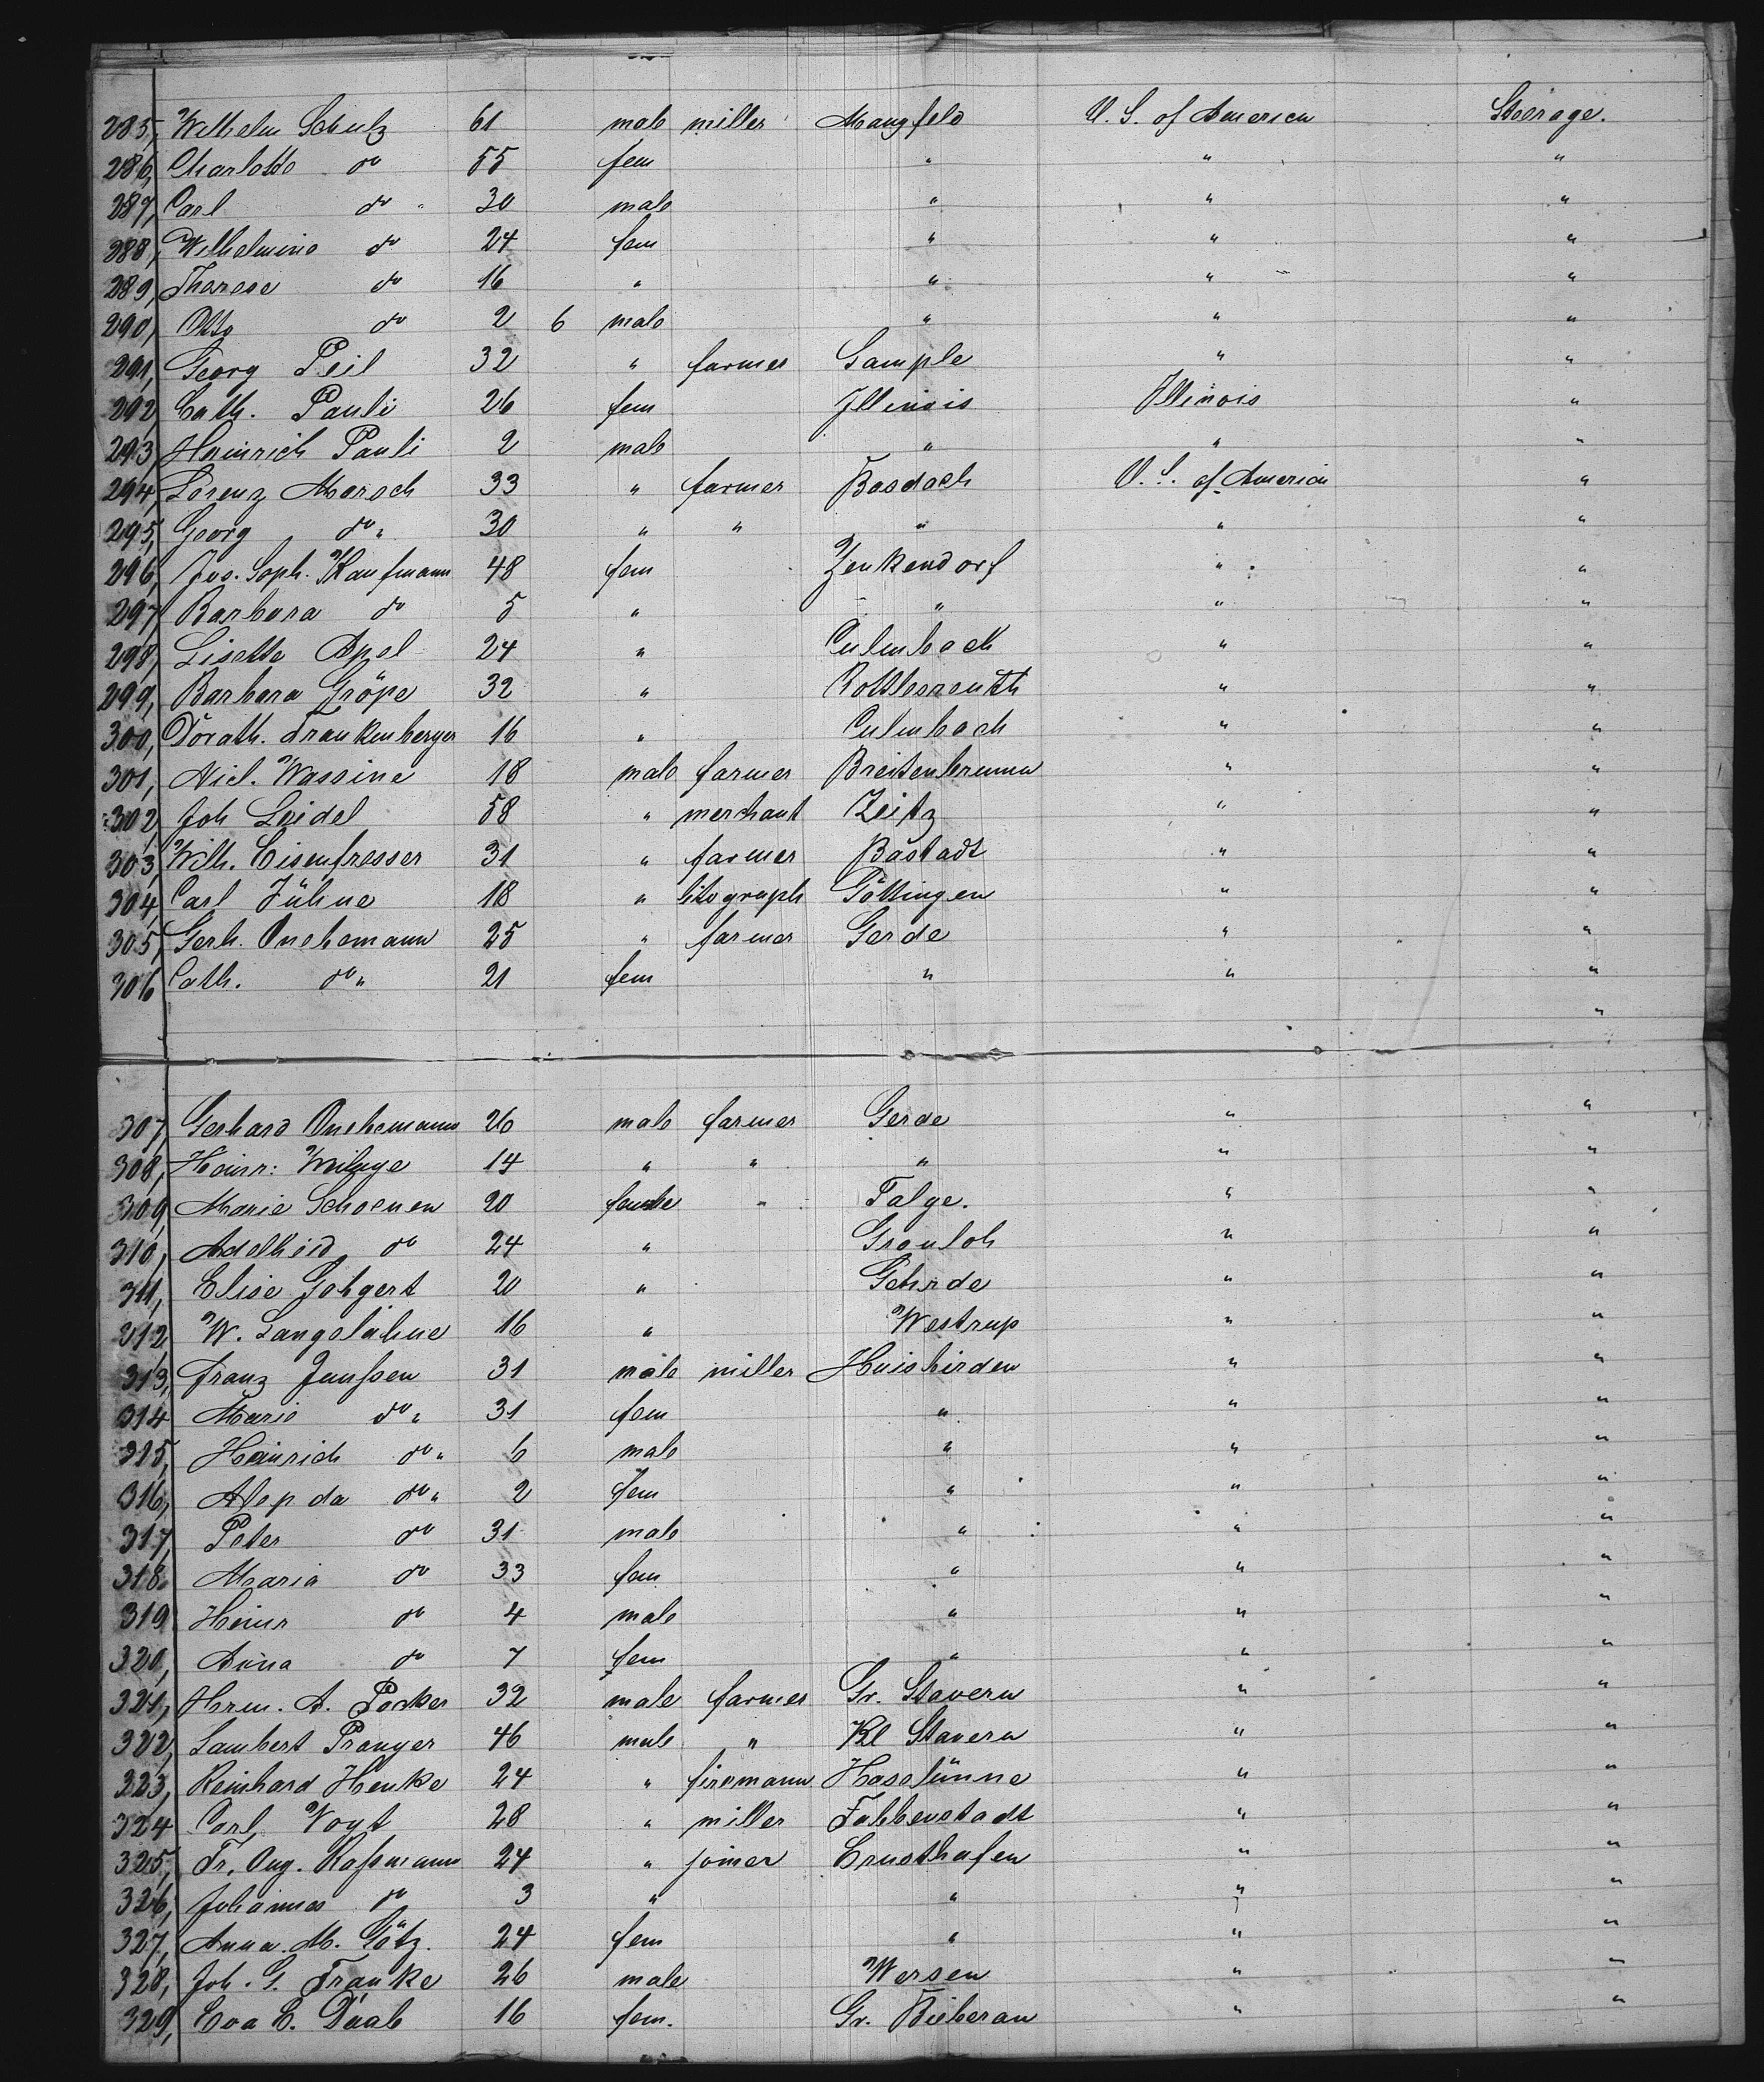 285, Wilhelm Schulz 61 male miller Mangfeld U. S. of America Steerage.
286, Charlotte do 55 fem " " "
287, Carl do " 30 male " " "
288, Wilhelmine do 24 fem " " "
289, Therese do 16 " " " "
290, Otto do 2 6 male " " "
291, Georg Peil 32 " farmer Gample " "
292, Cath. Pauli 26 fem Illinois Illinois "
293, Heinrich Pauli 2 male " " "
294, Lorenz Morsch 33 " farmer Basdach U. S. of America "
295, Georg do " 30 " " " " "
296, Jos. Soph. Kaufmann 48 fem Zenkendorf " "
297, Barbara do 5 " " " "
298, Lisette Apel 24 " Culmbach " "
299, Barbara Gröpe 32 " Kottlesreuth " "
300, Dorath. Frankenberger 16 " Culmbach " "
301, Nicl. Wassine 18 male farmer Breitenbrunn " "
302, Joh Leidel 58 " merchant Zeitz " "
303, Wilh. Eisenfresser 31 " farmer Bastadt " "
304, Carl Jühne 18 " litograph Göttingen " "
305, Gerh. Onehemann 25 " farmer Gerde " "
306 Cath. do " 21 fem " " "
"
307, Gerhard Onehemann 26 male farmer Gerde " "
308, Heinr: 14 " " " " "
309, Marie Schoenen 20 female " Talge. " "
310, Adelheid do 24 " Gronloh " "
311, Elise Gohgert 20 " Gehrde " "
312, W. Langelähne 16 " Westrup " "
313, Franz Janßen 31 male miller Huisbirden " "
314 Marie do " 31 fem " " "
315, Heinrich do " 6 male " " "
316, Alepda do " 2 fem " " "
317, Peter do 31 male " " "
318. Maria do 33 fem " " "
319 Heinr do 4 male " " "
320, Anna do 7 fem " " "
321, Herm. A. Pocker 32 male farmer Gr. Stavern " "
322, Lambert Pranger 46 male " Kl Stavern " "
323, Reinhard Henke 24 " firemann Haselünne " "
324 Carl Vogt 28 " miller Fabbenstadt " "
325, Fr. Aug. Kaßmann 24 " joiner Ernsthofen " "
326, Johannes do 3 " " " "
327, Anna M. Götz. 24 fem " " "
328, Joh. G. Franke 26 male Wersen " "
329, Eva E. Daab 16 fem. Gr. Bieberau " "